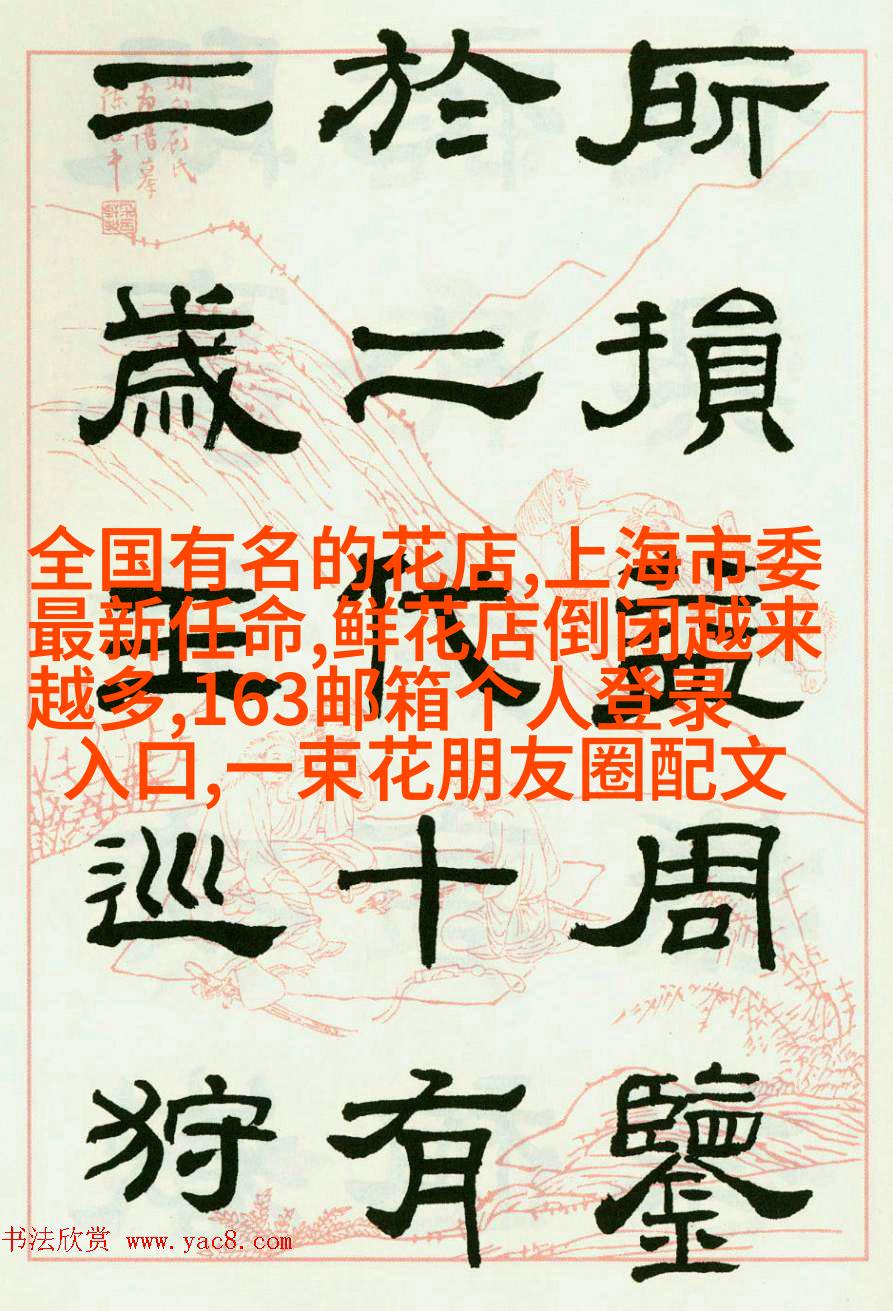 所損益周鑒
於二代十有
二歲王巡狩
全国有名的花店,上海市委
最新任命,鲜花店倒闭越来
越多,163邮箱个人登录
入口,一束花朋友圈配文
书法欣赏 www.yac8.com